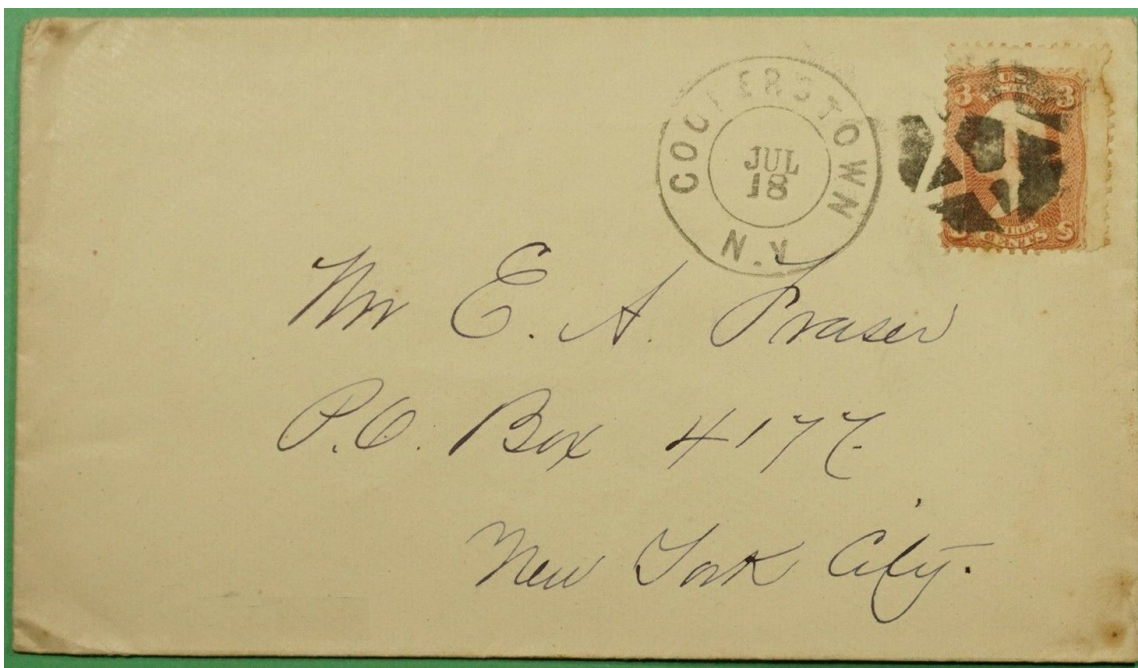 COOPERSTOWN
JUL
18
N.Y.
U.S.
3 3
THREE
CENTS
Mr E. A. Fraser
P.O. Box 4177.
New York City.